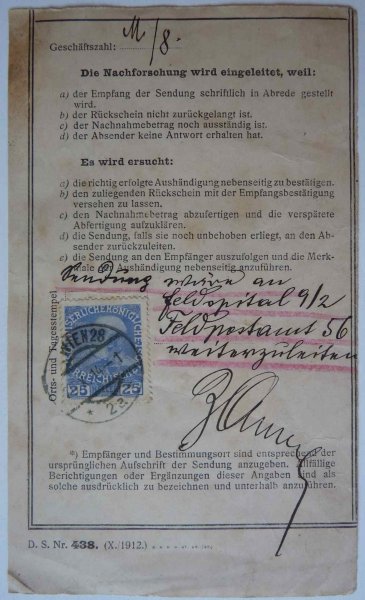 Geschäftszahl: M/8.
Die Nachforschung wird eingeleitet, weil:
a) der Empfang der Sendung schriftlich in Abrede gestellt
wird.
b) der Rückschein nicht zurückgelangt ist.
c) der Nachnahmebetrag noch ausständig ist.
d) der Absender keine Antwort erhalten hat.
Es wird ersucht:
a) die richtig erfolgte Aushändigung nebenseitig zu bestätigen.
b) den zuliegenden Rückschein mit der Empfangsbestätigung
versehen zu lassen.
c) den Nachnahmebetrag abzufertigen und die verspätete
Abfertigung aufzuklären.
d) die Sendung, falls sie noch unbehoben erliegt, an den Ab-
sender zurückzuleiten.
e) die Sendung an den Empfänger auszufolgen und die Merk-
male der Aushändigung nebenseitig anzuführen.
Sendung wäre an
Feldspital 9/2
Feldpostamt 56
weiterzuleiten
Orts- und Tagesstempel
WIEN
25 25
*) Empfänger und Bestimmungsort sind entsprechend der
ursprünglichen Aufschrift der Sendung anzugeben. Allfällige
Berichtigungen oder Ergänzungen dieser Angaben sind als
solche ausdrücklich zu bezeichnen und unterhalb anzuführen.
D. S. Nr. 438. (X./1912.)